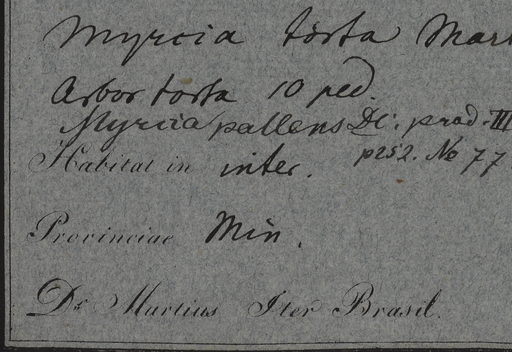 Myrcia torta Mart
Arbor torta 10 ped.
Myrcia pallens DC. prod. III
p252. No 77
Habitat in inter.
Provinciae Min.
Dr Martius Iter Brasil.